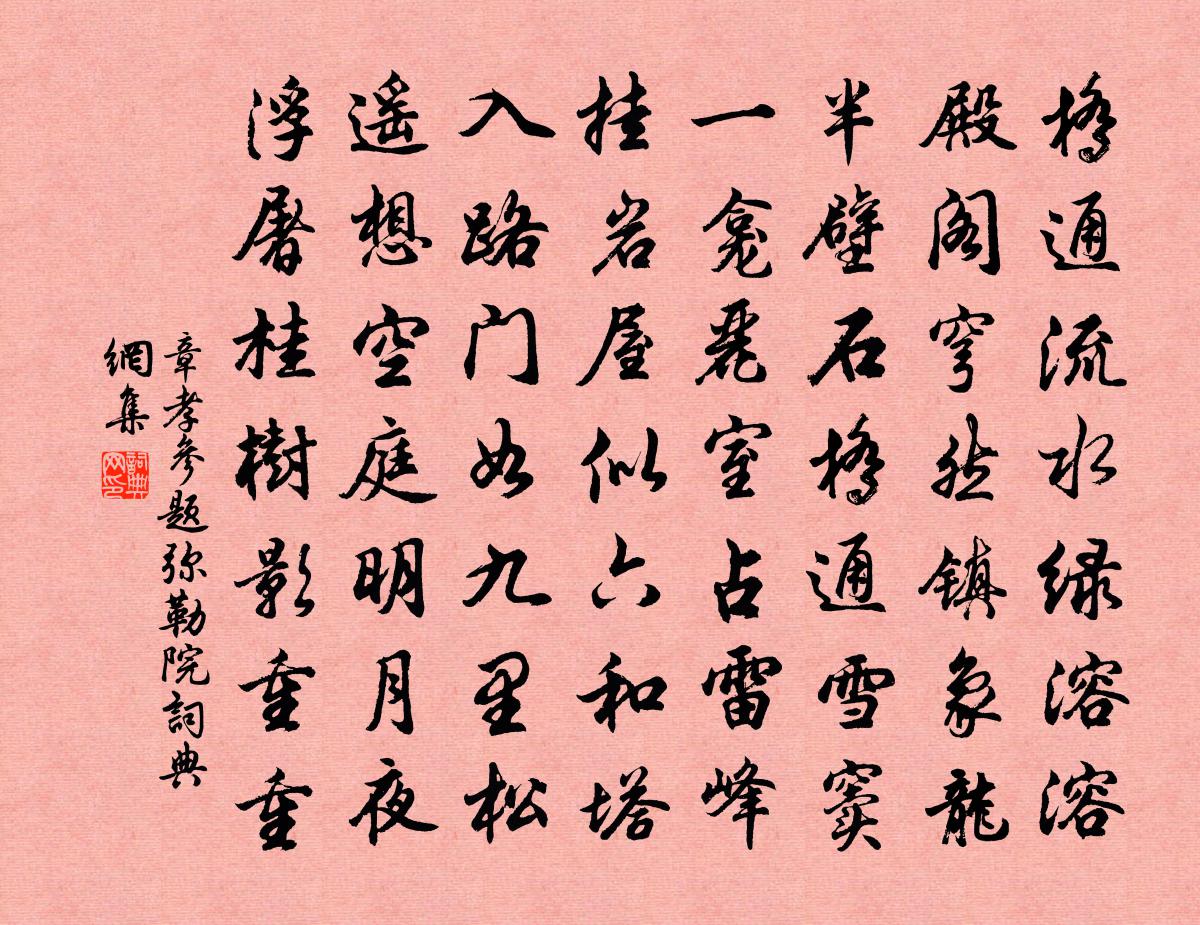 橋通流水绿溶溶
殿阁穹然镇象龍
半壁石橋通雪窦
一龛麗室占雷峰
挂岩屋似六和塔
入路门如九里松
遥想空庭明月夜
浮屠桂樹影重重
章孝参题弥勒院詞典
網集
詞典
网印